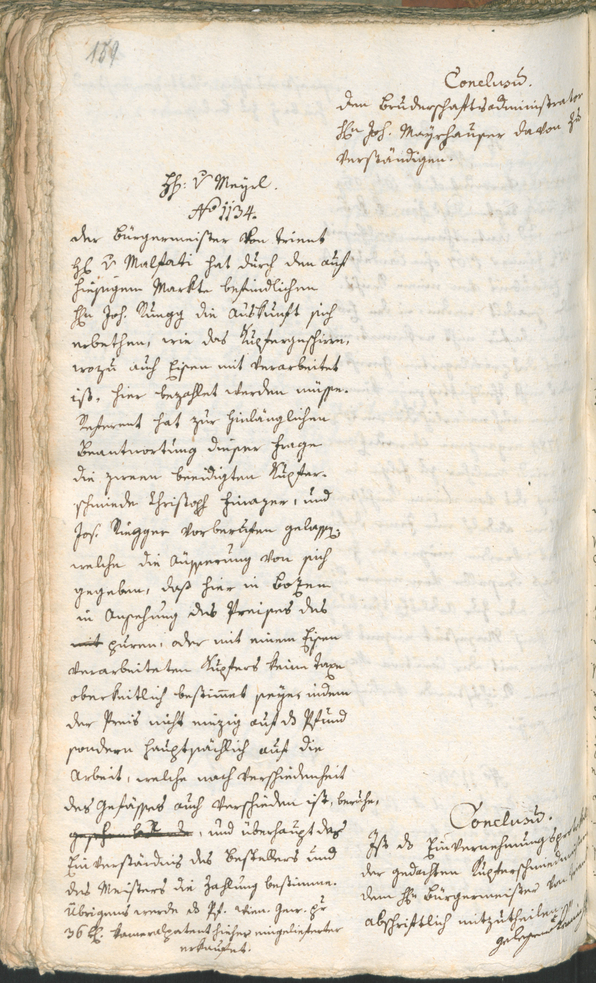 159
Conclusum.
dem Bruderschaftsadministrator
Hn Joh. Mayrhauser davon zu
verständigen.
HH: v Meyel.
No 1134.
der Bürgermeister von Trient
H v Malfati hat durch den auf
hiesigem Markte befindlichen
Hn Joh. Rungg die Auskunft sich
erbethen, wie das Kupfergeschirr,
wozu auch Eisen mit verarbeitet
ist, hier bezahlet werden müsse.
Referent hat zur hinlänglichen
Beantwortung dieser Frage
die zween beeidigten Kupfer-
schmiede Christoph Finazer, und
Jos. Rungger vorberufen gelassen,
welche die Äusserung von sich
gegeben, daß hier in Botzen
in Ansehung des Preises des
puren, oder mit einem Eisen
verarbeiteten Kupfers keine Taxe
oberkeitlich bestimmt seye, indem
der Preis nicht einzig auf das Pfund
sondern hauptsächlich auf die
Arbeit, welche nach Verschiedenheit
des Gefässes auch verschieden ist, beruhe,
und überhaupt das
Einverständnis des Bestellers und
des Meisters die Zahlung bestimme.
Übrigens werde das Pf. wien. Gew. pr
36 Cameralpatent hieher eingelieferter
erkaufet.
Conclusum.
Ist das Einvernehmungs
der gedachten Kupferschmied
dem Hn Bürgermeister von
abschriftlich mitzutheilen